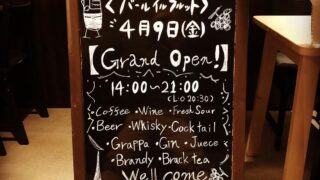 〈バール イル フルット〉
4月9日(金)
【Grand Open!】
14:00〜21:00
(L.O 20:30)
・Coffee ・Wine ・Fresh Sour
・Beer ・Whisky ・Cocktail
・Grappa ・Gin ・Juece
・Brandy ・Brack tea
Well come